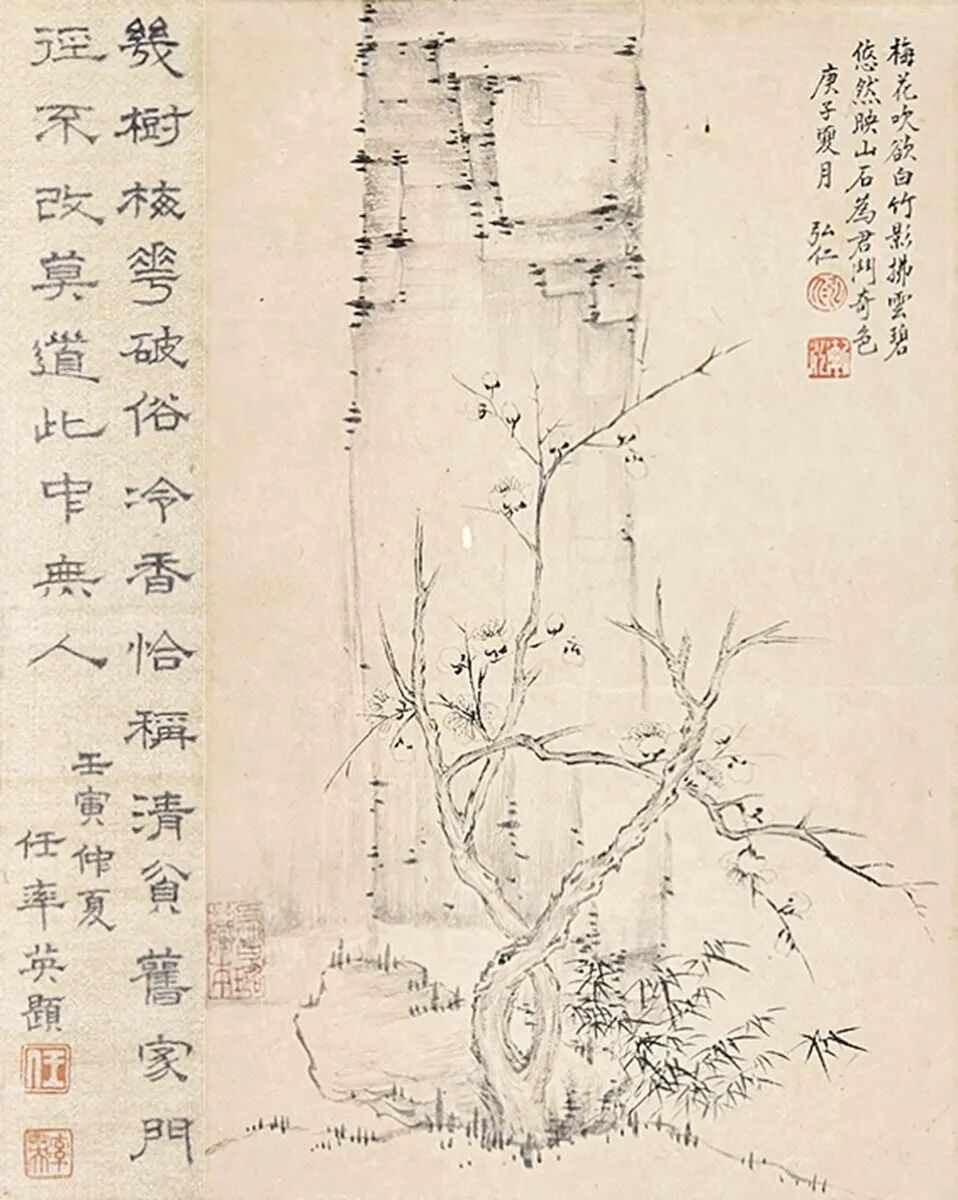 梅花吹欲白竹影拂雲碧
悠然映山石為君鬥奇色
庚子夏月 弘仁
幾樹梅華破俗冷香恰稱清貧舊家門
徑不改莫道此中無人
壬寅仲夏
任率英題
任
率英